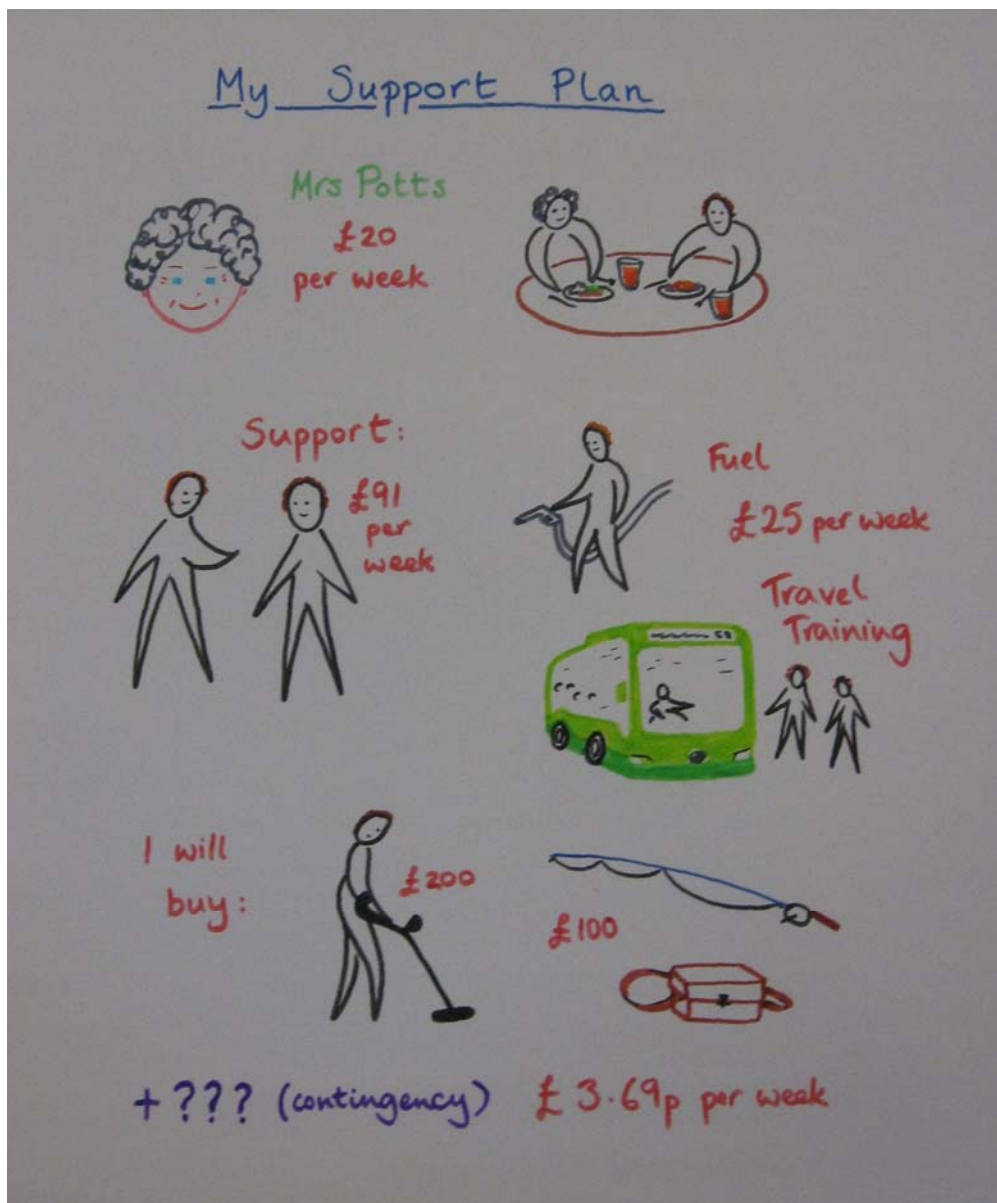 My Support Plan
Mrs Potts
£20
per week
Support:
£91
per
week
Fuel
£25 per week
Travel
Training
I will
buy:
£200
£100
+ ??? (contingency) £3.69p per week